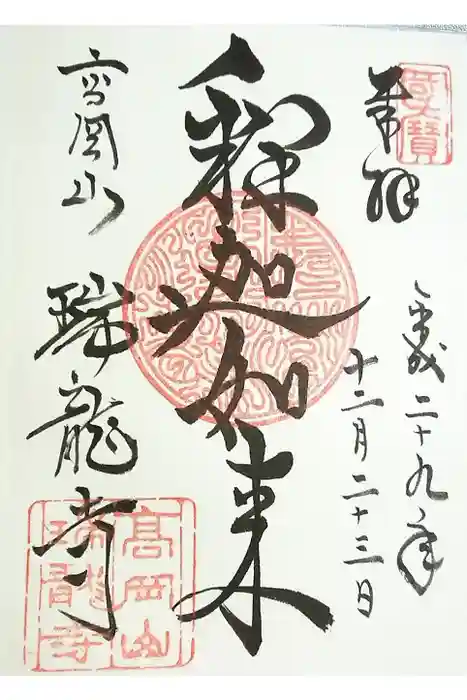 奉拝
平成二十九年
十二月二十三日
釋迦如来
高岡山
瑞龍寺
國寶
高岡山
瑞龍寺